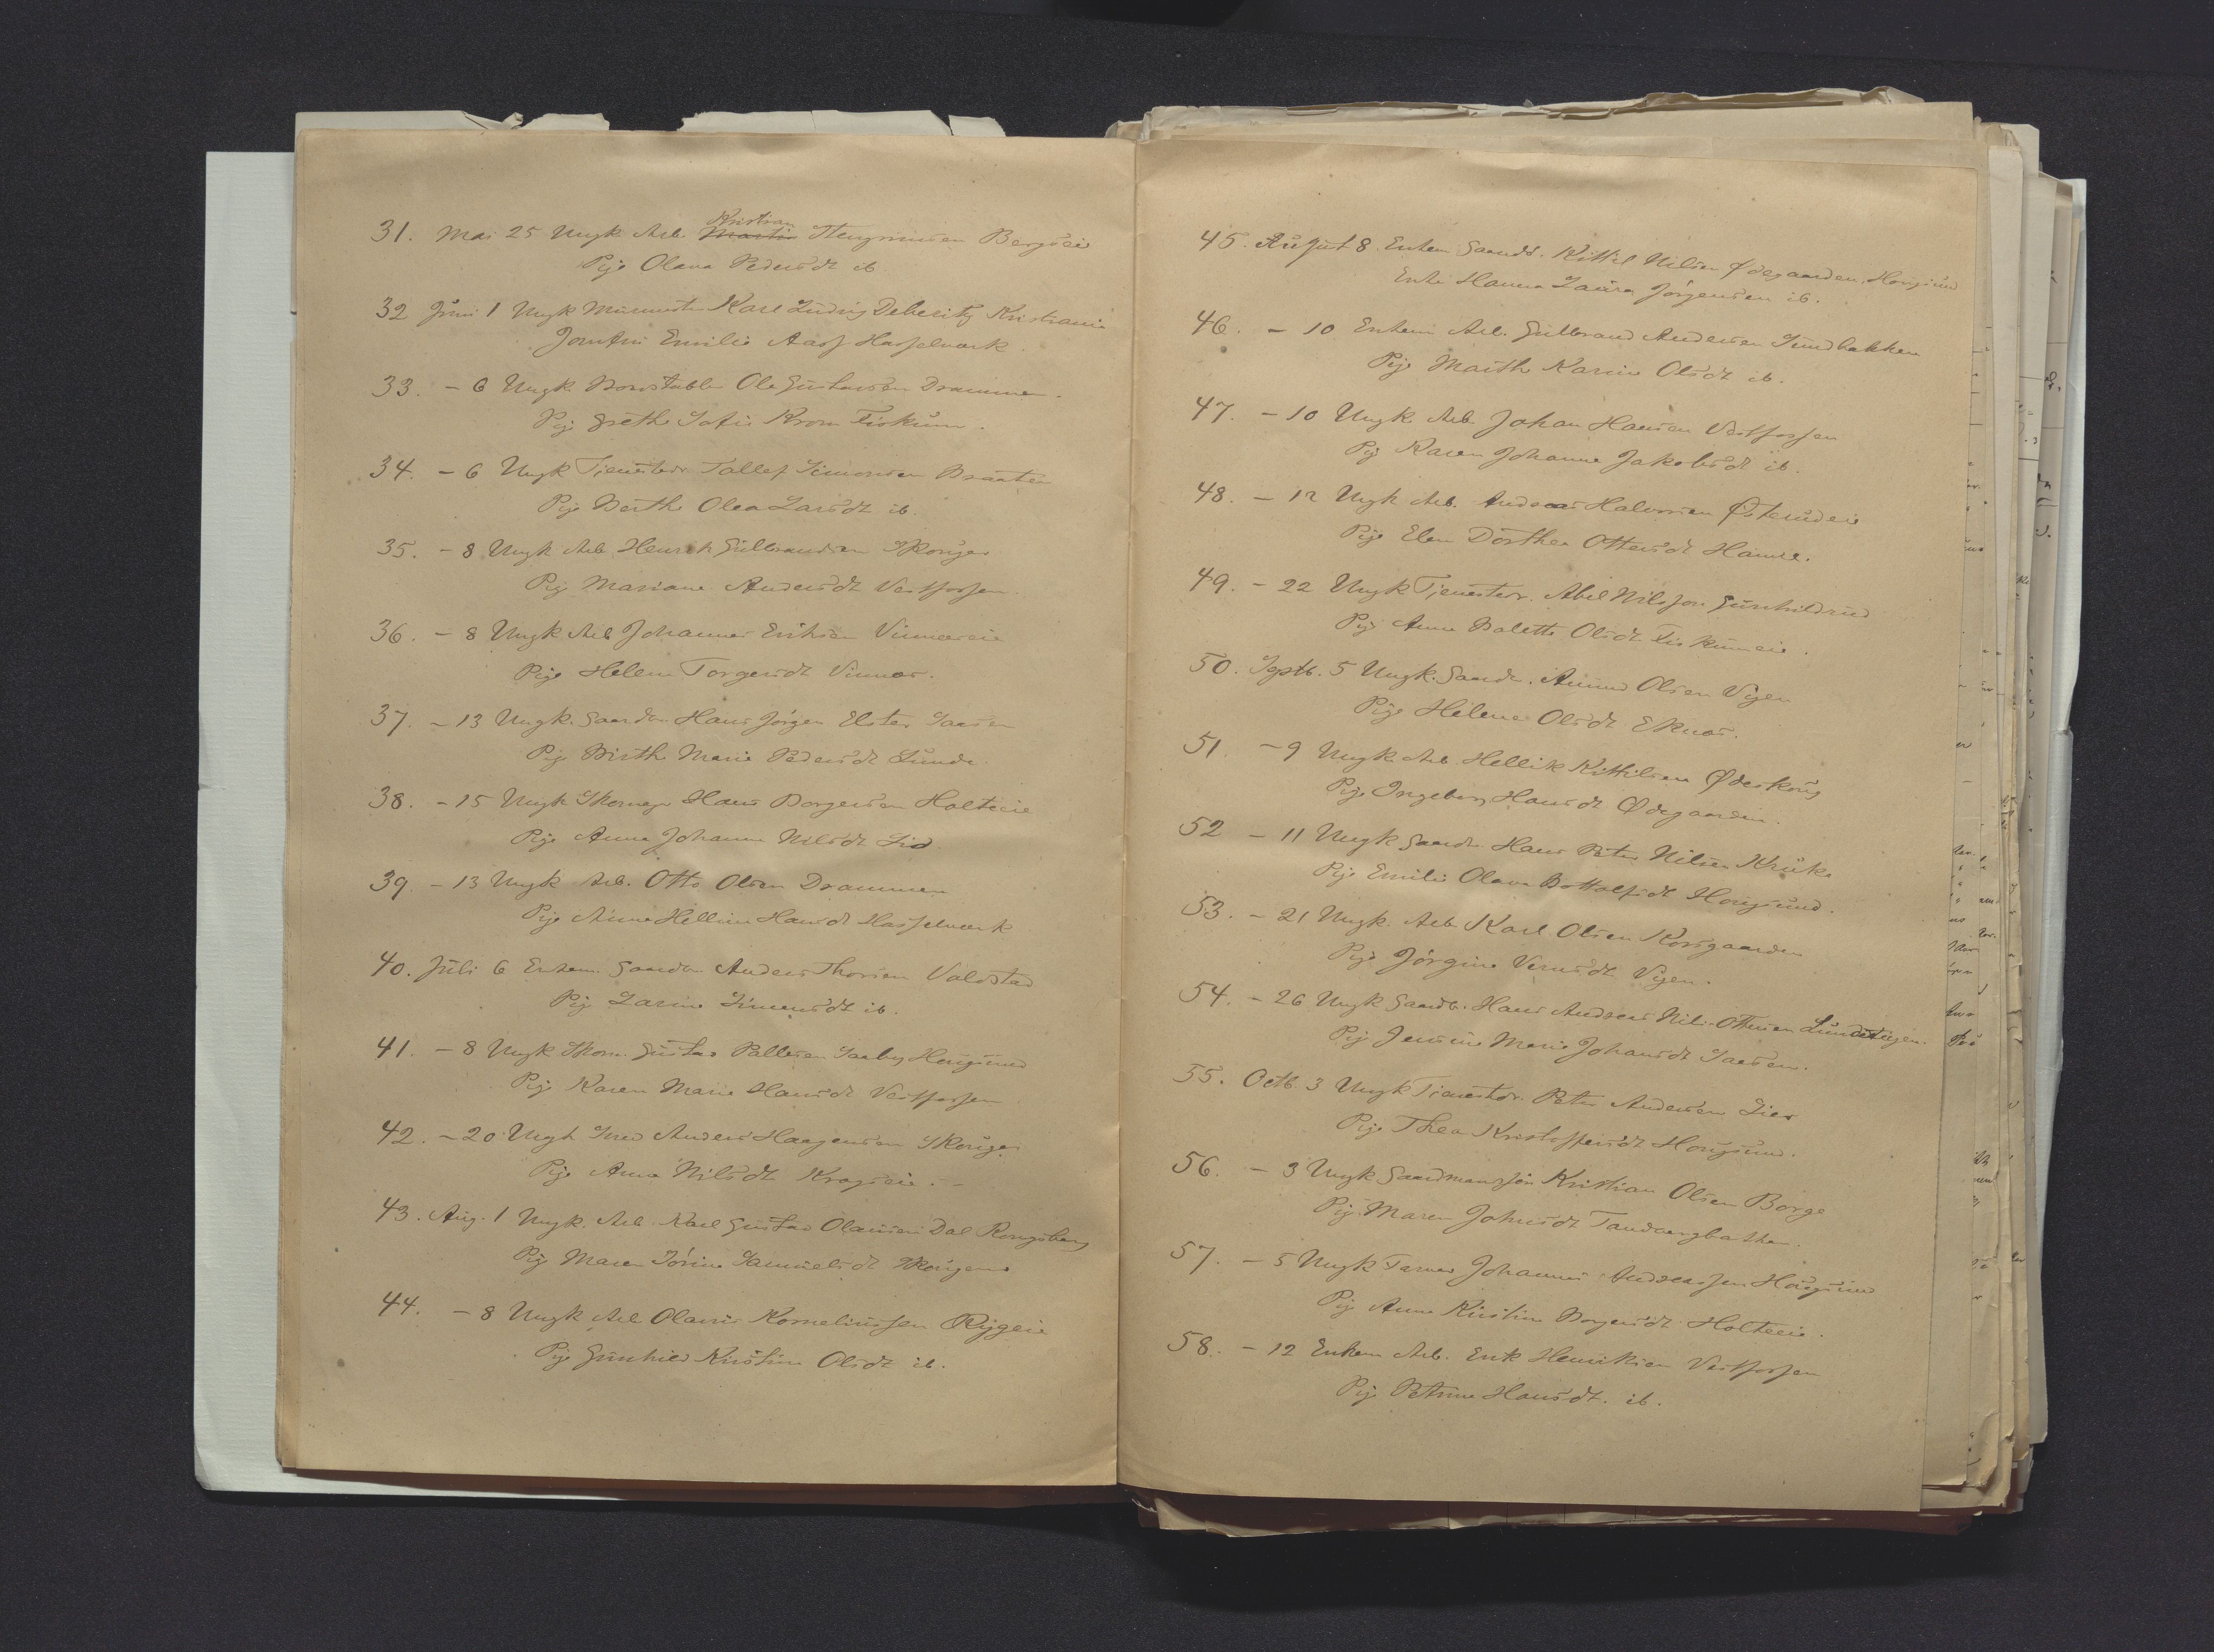 Kristian
31. Mai 25 Ungk Arb. Martin Stengrimsen Bergseie
Pige Olava Pedersdt ib
32 Juni 1 Ungk Murmester Karl Ludvig Debesitz Kristiania
Jomfru Emilie Aass Hasselværk
33. - 6 Ungk Konstabler Ole Gustavsen Drammen.
Pig Grethe Sofie Krom Fiskum.
34. - 6 Ungk Tjenestedr Tallef Simonsen Braaten
Pige Berthe Olea Larsdt ib.
35. - 8 Ungk Arb Henrik Gulbrandsen Skouger
Pig Mariane Andersdt Vestfossen
36. - 8 Ungk Arb Johannes Eriksen Vinnæseie
Pige Helene Torgersdt Vinnæs.
37. - 13 Ungk. Gaardbr. Hans Jørgen Elster Saasen
Pig Birthe Marie Pedersdt Lunde.
38. - 15 Ungk Skomager Hans Borgersen Holteeie
Pige Anna Johanne Nilsdt Lid
39. - 13 Ungk Arb. Otto Olsen Drammen
Pige Anne Helline Hansdt Hasselværk
40. Juli 6 Enkem. Gaardbr. Anders Thorsen Valdstad
Pig Larine Simensdt ib.
41. - 8 Ungk Skom. Gustav Pallesen Saaby Hougsund
Pig Karen Marie Hansdt Vestfossen
42. - 20 Ungk Smed Anders Haagensen Skouger
Pige Anne Nilsdt Kragseie. -
43. Aug. 1 Ungk. Arb. Karl Gustav Olausen Dal Kongsberg
Pig Maren Sørine Samuelsdt Skougene
44. - 8 Ungk Arb Olaus Korneliussen Rygeie
Pige Gunhild Kristine Olsdt ib.
45. August 8. Enkem Gaardb. Kittil Nilsen Ødegaarden, Hougsund
Enke Hanna Laura Jørgensen ib.
46. - 10 Enkem Arb. Gulbrand Andersen Sundbakken
Pige Marthe Karine Olsdt ib.
47. - 10 Ungk Arb. Johan Hansen Vestfossen
Pig Karen Johanne Jakobsdt ib.
48. - 12 Ungk Arb. Andreas Halvorsen Østerudeie
Pige Elen Dorthea Ottersdt Hamre.
49. - 22 Ungk Tjenestedr. Abel Nilsson Gunhildrud
Pige Anne Bolette Olsdt Fiskumeie.
50. Septb. 5 Ungk. Gaardb. Amund Olsen Vegen
Pige Helene Olsdt Eknæs.
51. - 9 Ungk Arb. Hellik Kittilsen Ødeskoug
Pige Ingeborg Hansdt Ødegaarden.
52 - 11 Ungk Gaardb. Hans Peter Nilsen Kruke
Pige Emilie Olava Bottolfsdt Hougsund.
53. - 21 Ungk. Arb Karl Olsen Korsgaarden
Pige Jørgine Vernsdt Vegen.
54. - 26 Ungk Gaardb. Hans Andreas Nils Ottesen Lundsteigen.
Pig Jensine Marie Johansdt Saasen.
55. Octb. 3 Ungk Tjenestdr. Peter Andersen Lier
Pige Thea Kristoffersdt Hougsund.
56. - 3 Ungk Gaardmandssøn Kristian Olsen Borge
Pig. Maren Johnsdt Tandbergbakken.
57. - 5 Ungk Farver Johannes Andreassen Hougsund
Pig Anne Kristine Borgersdt Holteeie.
58. - 12 Enkem Arb. Erik Henriksen Vestfossen
Pig Petrine Hansdt. ib.